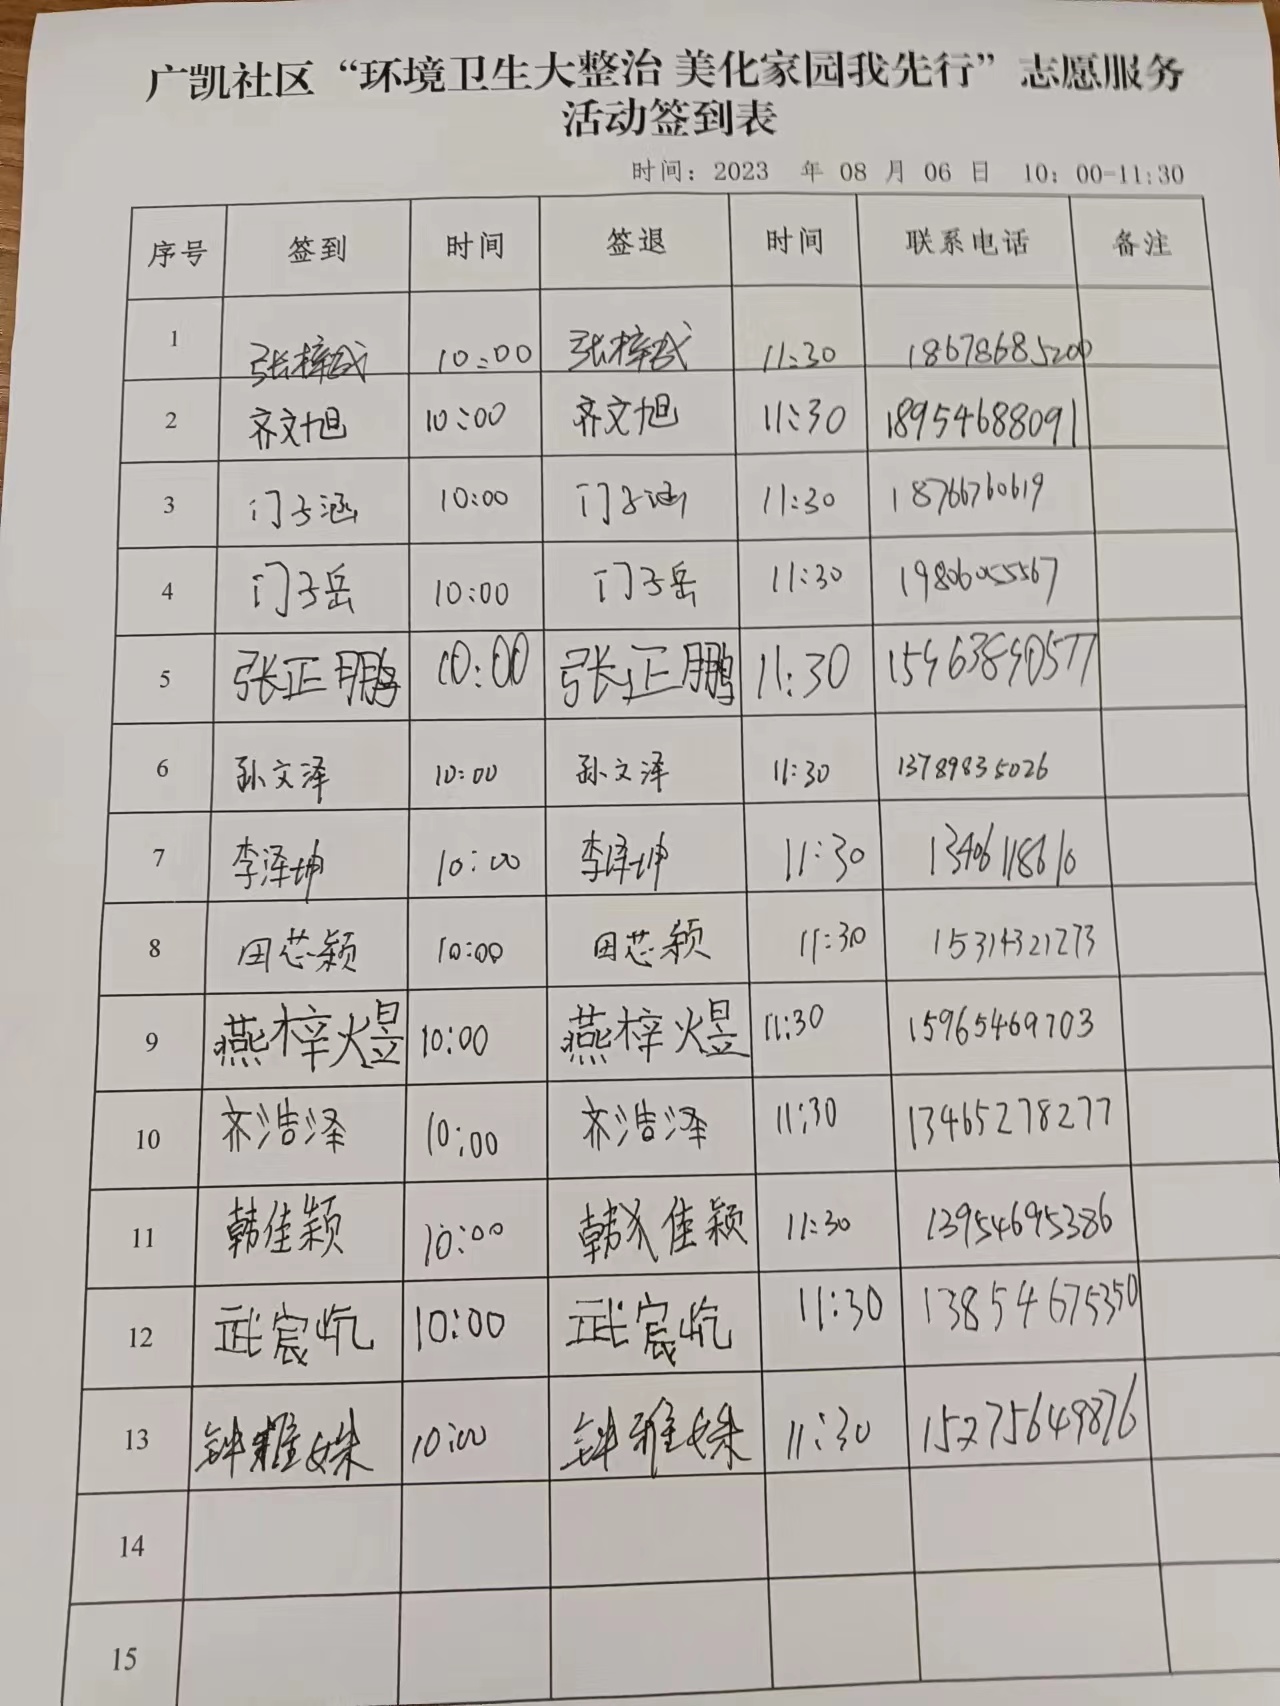 广凯社区“环境卫生大整治 美化家园我先行”志愿服务
活动签到表
时间：2023 年 08 月 06 日 10：00-11:30
序号 签到 时间 签退 时间 联系电话 备注
1 张梓武 10:00 张梓武 11:30 18678685200
2 齐文旭 10:00 齐文旭 11:30 18954688091
3 门子涵 10:00 门子涵 11:30 18766760619
4 门子岳 10:00 门子岳 11:30 19806055567
5 张正鹏 10:00 张正鹏 11:30
6 孙文泽 10:00 孙文泽 11:30 13789835026
7 李泽坤 10:00 李泽坤 11:30 13406118610
8 田芯颖 10:00 田芯颖 11:30 15314321273
9 燕梓煜 10:00 燕梓煜 11:30 15965469703
10 齐浩泽 10:00 齐浩泽 11:30 13465278277
11 韩佳颖 10:00 韩佳颖 11:30 13954695386
12 武宸屹 10:00 武宸屹 11:30 13854675350
13 钟雅姝 10:00 钟雅姝 11:30 15275649876
14
15